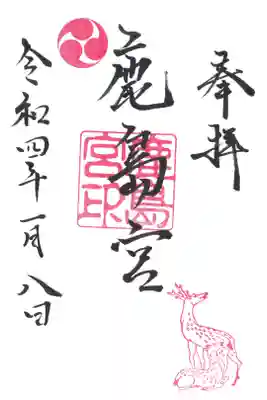 奉拝
鹿島宮
鹿島
宮印
令和四年一月八日